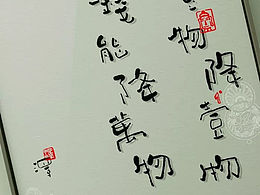 物降壹物
錢能降萬物